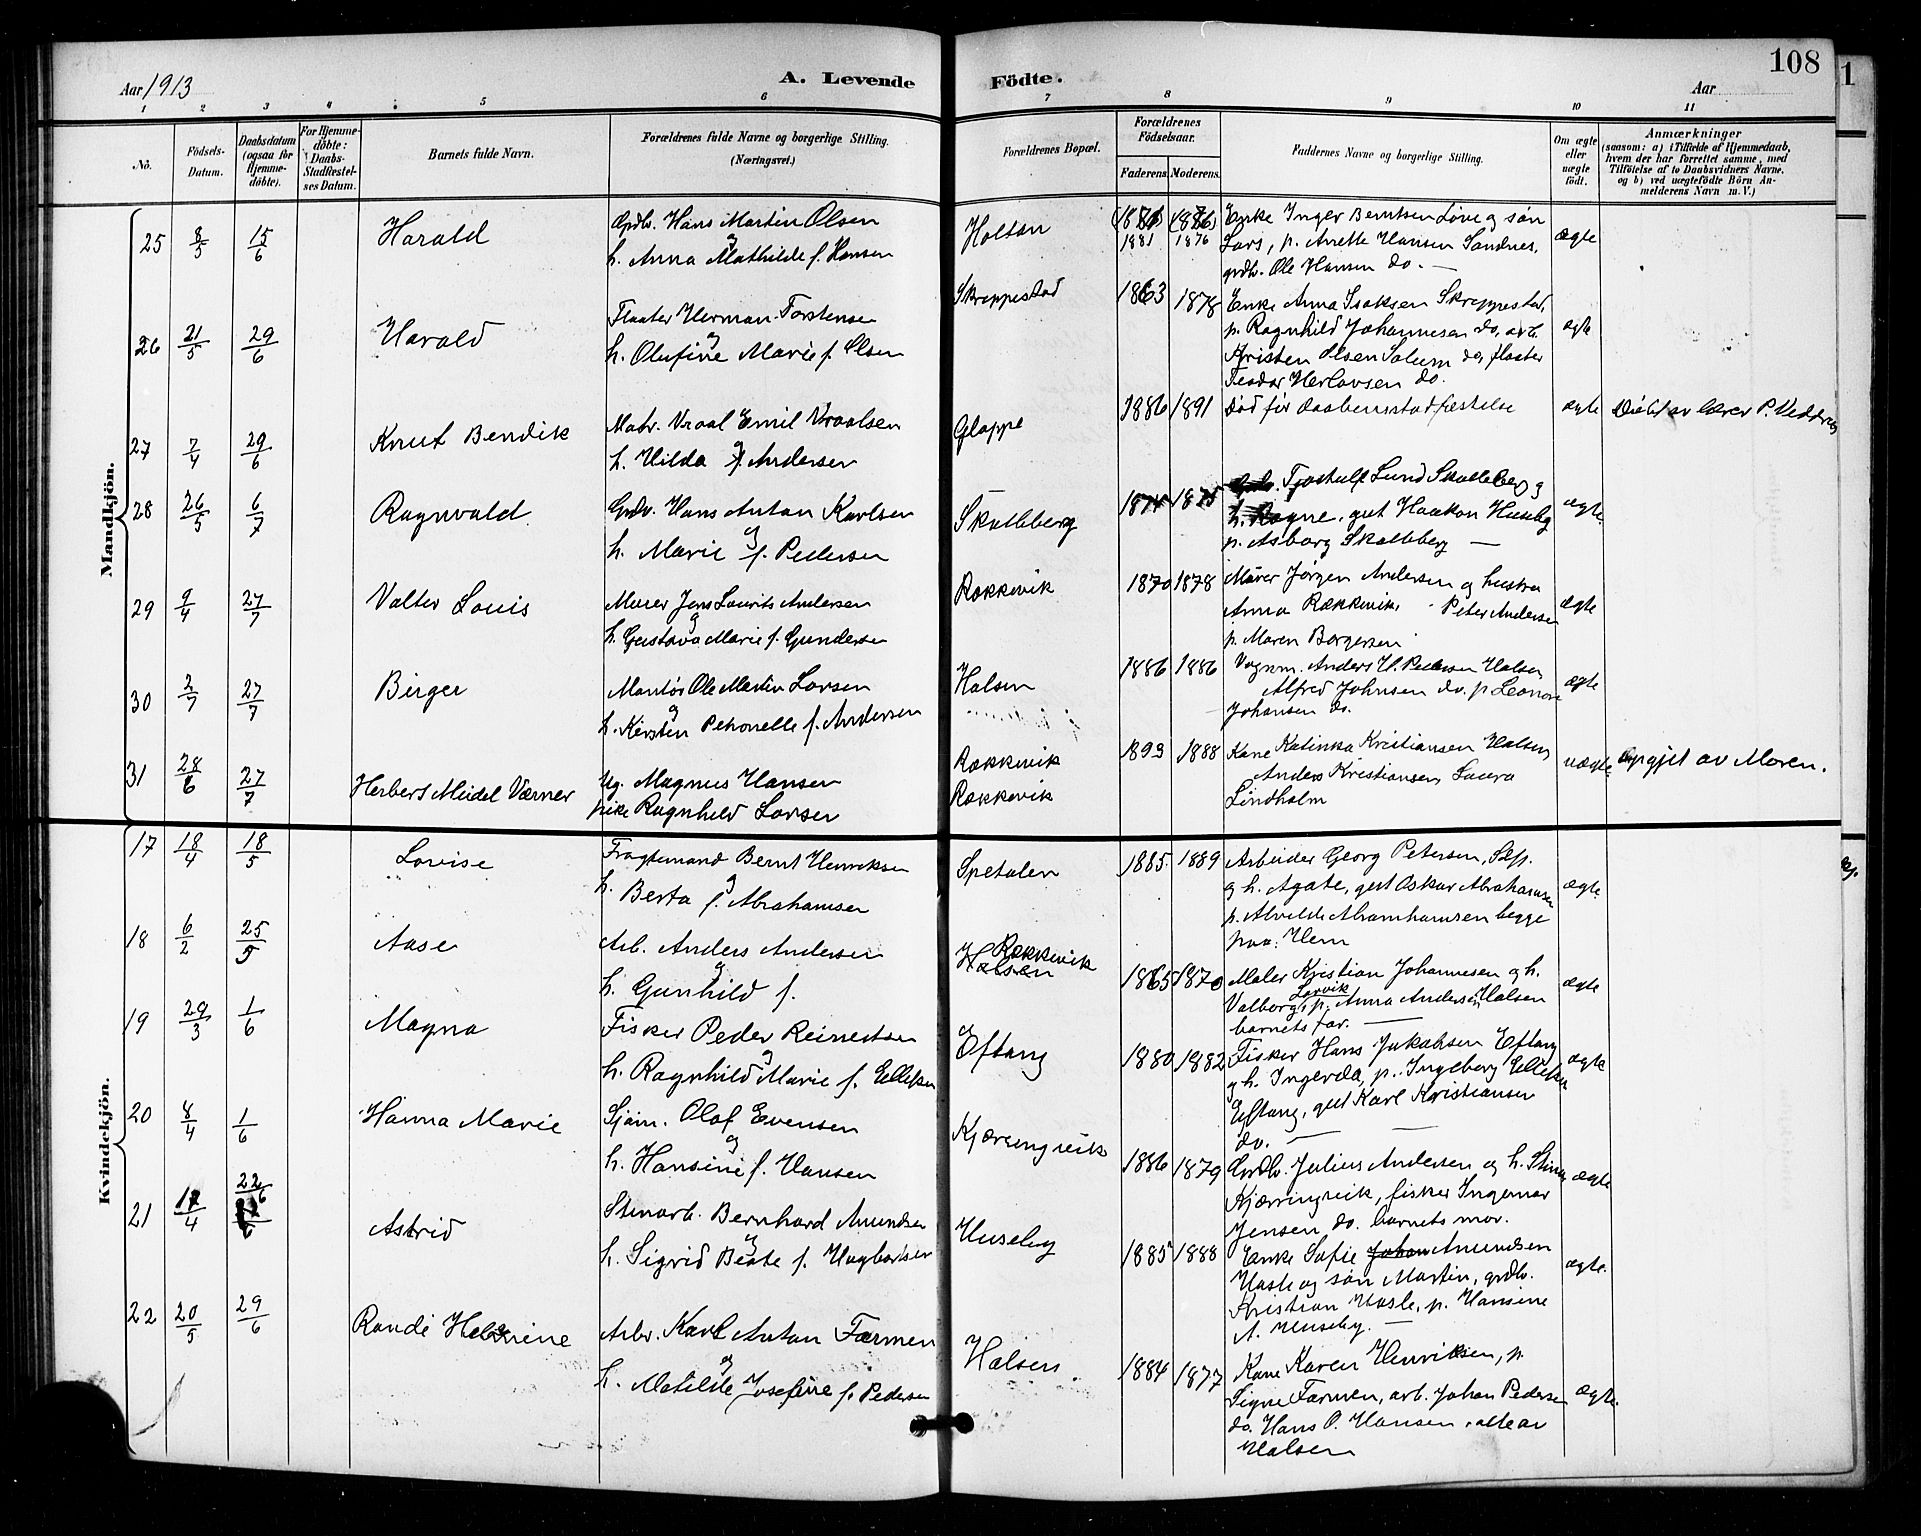 Aar 1913
A. Levende
Födte.
Aar
108
1
1 2 3 4 5 6 7 8 9 10 11
No.
Födsels-Datum.
Daabsdatum (ogsaa for Hjemmedöbte).
For Hjemmedöbte: Daabs-Stadfæstelses Datum.
Barnets fulde Navn.
Forældrenes fulde Navne og borgerlige Stilling. (Næringsvei.)
Forældrenes Bopæl.
Forældrenes Födselsaar.
Faderens. Moderens.
Faddernes Navne og borgerlige Stilling.
Om ægte eller uægte født.
Anmærkninger
(saasom: a) i Tilfælde af Hjemmedaab, hvem der har forrettet samme, med Tilföielse af to Daabsvidners Navne, og b) ved uægtefödte Börn Anmelderens Navn m. V.)
Mandkjön.
25 8/5 15/6 Harald
Grdbr. Hans Martin Olsen
og
h. Anna Mathilde f. Hansen
Holtan
1881 1876
Enke Inger Berntsen Løve og søn
Lars, p. Anette Hansen Sandnes,
grdbr. Ole Hansen do. —
ægte
26 21/5 29/6 Harald
Fløater Herman Torstensen
og
h. Olufine Marie f. Olsen
Skreppestad
1863 1878
Enke Anna Isaksen Skreppestad,
p. Ragnhild Johannesen do, arb.
Kristen Olsen Solum do, fløater
Teodor Herlovsen do.
ægte
27 7/4 29/6 Knut Bendik
Matr. Vraal Emil Vraalsen
og
h. Hilda f. Andersen
Gloppe
1886 1891
Død før daabens stadfæstelse
ægte
Døbt av lærer P. Vedderen
28 26/5 6/7 Ragnvald
Grdbr. Hans Anton Karlsen
og
h. Marie f. Pedersen
Skalleberg
1874 1875
Tjostulf Lund Skalleberg og
h. Ragne, gut Haakon Huseby
p. Asborg Skalleberg —
ægte
29 9/4 27/7 Valter Louis
Murer Jens Laurits Andersen
og
h. Gustava Marie f. Gundersen
Rækkevik
1870 1878
Murer Jørgen Andersen og hustru
Anna Rækkevik, Peter Andersen
p. Maren Borgersen
ægte
30 2/7 27/7 Birger
Montør Ole Martin Larsen
og
h. Kirsten Petronelle f. Andersen
Halsen
1886 1886
Vognm. Anders H. Pedersen Halsen
Alfred Johnsen do. p. Leonore
Johansen do.
ægte
31 28/6 27/7 Herbert Meidel Værner
Ug. Magnus Hansen
pike Ragnhild Larsen
Rækkevik
Rækkevik
1893 1888
Kone Katinka Kristiansen Halsen,
Anders Kristiansen, Laura
Lindholm
uægte
Opgjet av Moren.
Kvindekjön.
17 18/4 18/5 Lovise
Fragtemand Bernt Henriksen
og
h. Berta f. Abrahamsen
Spetalen
1885 1889
Arbeider Georg Petersen, Sdfj.
og h. Agate, gut Oskar Abrahamsen
p. Alvilde Abramhamsen begge
paa Hem
ægte
18 6/2 25/5 Aase
Arb. Anders Andersen
og
h. Gunhild f.
Rækkevik
Halsen
1865 1870
Maler Kristian Johannesen og h.
Valborg Larvik, p. Anna Andersen Halsen
barnets far. —
ægte
19 29/3 1/6 Magna
Fisker Peder Reinertsen
og
h. Ragnhild Marie f. Ellefsen
Eftang
1880 1882
Fisker Hans Jakobsen Eftang
og h. Ingerda, p. Ingeborg Ellefsen
Eftang, gut Karl Kristiansen
do. —
ægte
20 8/4 1/6 Hanna Marie
Sjøm. Olaf Evensen
og
h. Hansine f. Hansen
Kjærringvik
1886 1879
Grdbr. Julius Andersen og h. Stina
Kjærringvik, fisker Ingemar
Jensen do. barnets mor.
ægte
21 17/4 22/6 Astrid
Stenarb. Bernhard Amundsen
og
h. Sigrid Beate f. Hagbartsen
Huseby
1885 1888
Enke Sofie Amundsen
Hasle og søn Martin, grdbr.
Kristian Hasle, p. Hansine
A. Huseby. —
ægte
22 20/5 29/6 Randi Helmine
Arbr. Karl Anton Farmen
og
h. Matilde Josefine f. Pedersen
Halsen
1884 1877
Kone Karen Henriksen, p.
Signe Farmen, arb. Johan Pedersen
do. Hans O. Hansen, alle av
Halsen
ægte